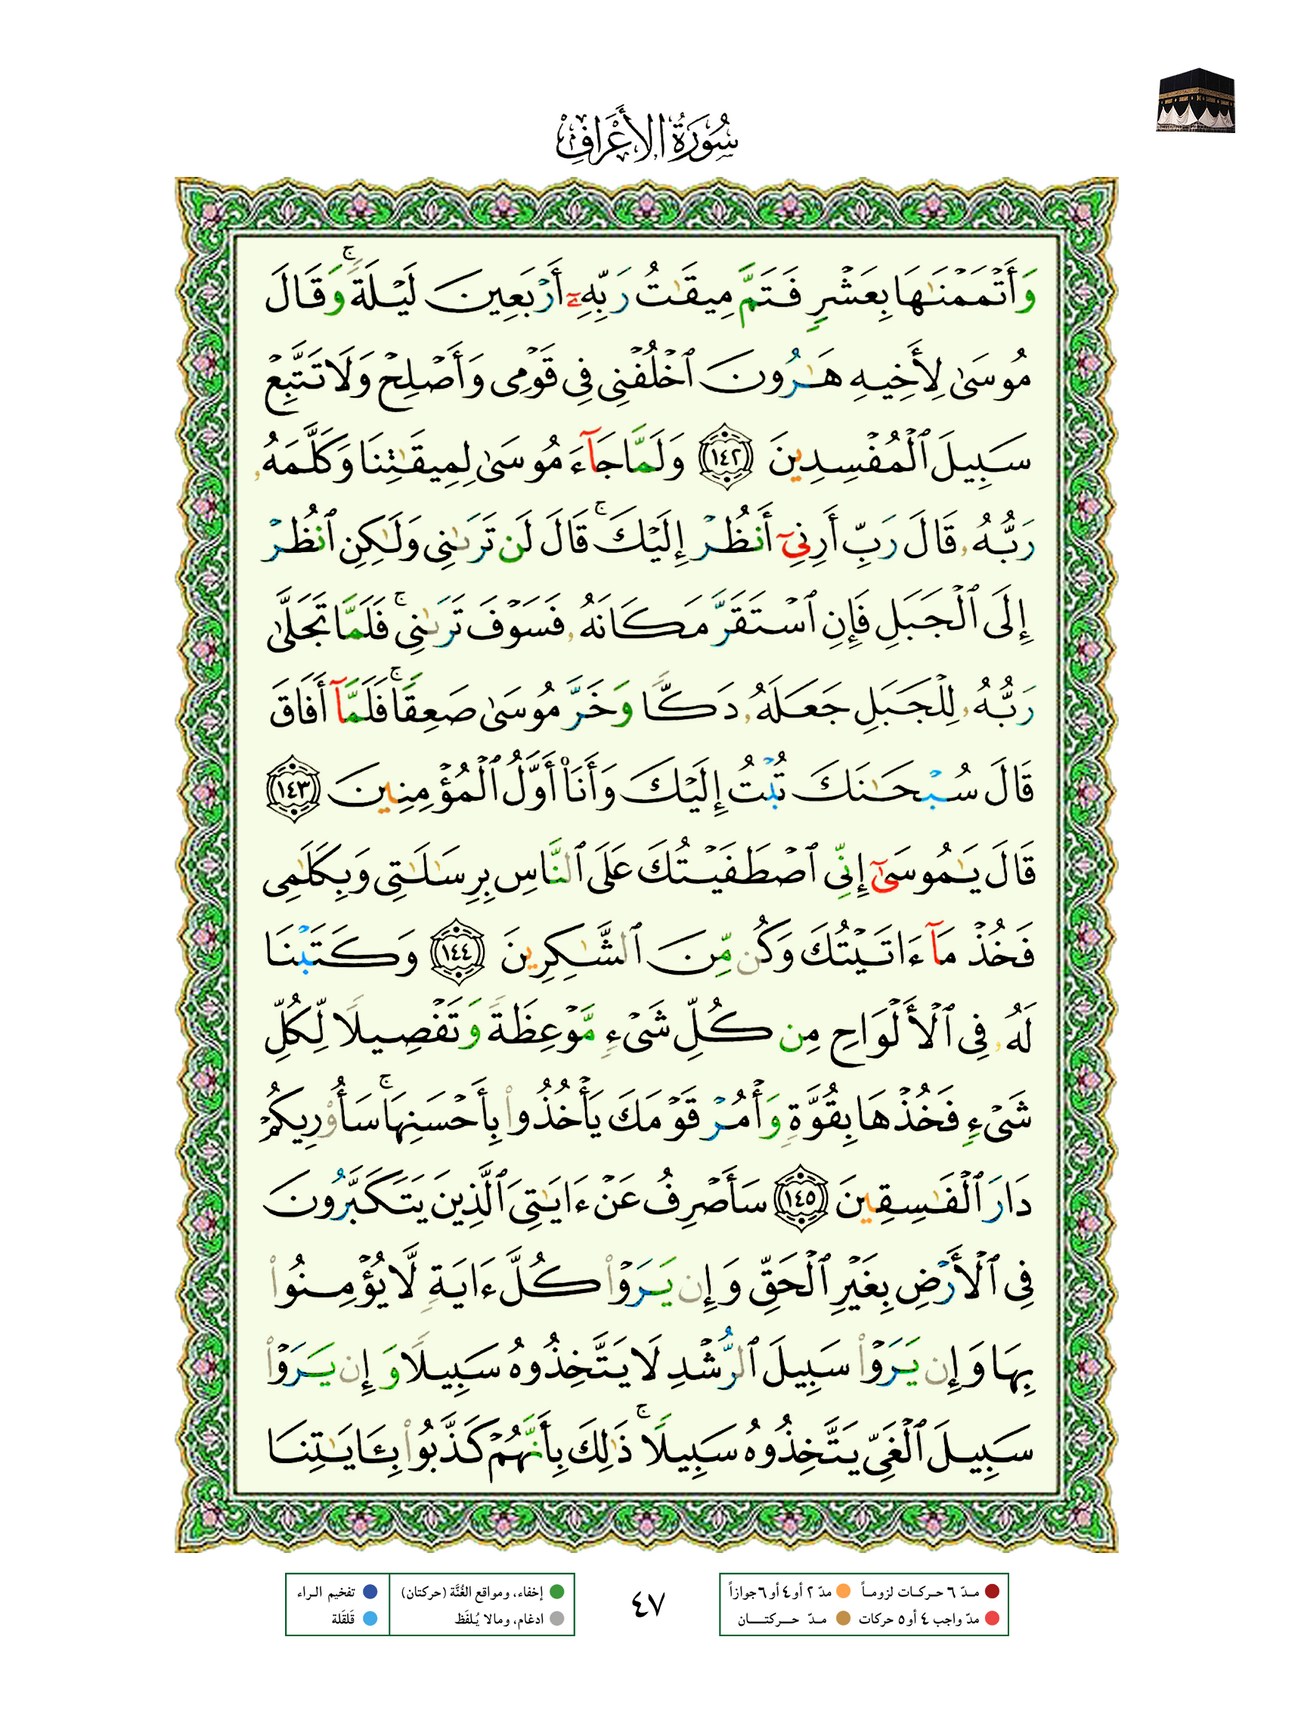 سُورَةُ الأَعْرَافِ
وَأَتْمَمْنَٰهَا بِعَشْرٍ فَتَمَّ مِيقَٰتُ رَبِّهِۦٓ أَرْبَعِينَ لَيْلَةً ۚ وَقَالَ
مُوسَىٰ لِأَخِيهِ هَٰرُونَ ٱخْلُفْنِى فِى قَوْمِى وَأَصْلِحْ وَلَا تَتَّبِعْ
سَبِيلَ ٱلْمُفْسِدِينَ ١٤٢ وَلَمَّا جَآءَ مُوسَىٰ لِمِيقَٰتِنَا وَكَلَّمَهُۥ
رَبُّهُۥ قَالَ رَبِّ أَرِنِىٓ أَنظُرْ إِلَيْكَ ۚ قَالَ لَن تَرَىٰنِى وَلَٰكِنِ ٱنظُرْ
إِلَى ٱلْجَبَلِ فَإِنِ ٱسْتَقَرَّ مَكَانَهُۥ فَسَوْفَ تَرَىٰنِى ۚ فَلَمَّا تَجَلَّىٰ
رَبُّهُۥ لِلْجَبَلِ جَعَلَهُۥ دَكًّا وَخَرَّ مُوسَىٰ صَعِقًا ۚ فَلَمَّآ أَفَاقَ
قَالَ سُبْحَٰنَكَ تُبْتُ إِلَيْكَ وَأَنَا۠ أَوَّلُ ٱلْمُؤْمِنِينَ ١٤٣
قَالَ يَٰمُوسَىٰٓ إِنِّى ٱصْطَفَيْتُكَ عَلَى ٱلنَّاسِ بِرِسَٰلَٰتِى وَبِكَلَٰمِى
فَخُذْ مَآ ءَاتَيْتُكَ وَكُن مِّنَ ٱلشَّٰكِرِينَ ١٤٤ وَكَتَبْنَا
لَهُۥ فِى ٱلْأَلْوَاحِ مِن كُلِّ شَىْءٍ مَّوْعِظَةً وَتَفْصِيلًا لِّكُلِّ
شَىْءٍ فَخُذْهَا بِقُوَّةٍ وَأْمُرْ قَوْمَكَ يَأْخُذُوا۟ بِأَحْسَنِهَا ۚ سَأُو۟رِيكُمْ
دَارَ ٱلْفَٰسِقِينَ ١٤٥ سَأَصْرِفُ عَنْ ءَايَٰتِىَ ٱلَّذِينَ يَتَكَبَّرُونَ
فِى ٱلْأَرْضِ بِغَيْرِ ٱلْحَقِّ وَإِن يَرَوْا۟ كُلَّ ءَايَةٍ لَّا يُؤْمِنُوا۟
بِهَا وَإِن يَرَوْا۟ سَبِيلَ ٱلرُّشْدِ لَا يَتَّخِذُوهُ سَبِيلًا وَإِن يَرَوْا۟
سَبِيلَ ٱلْغَىِّ يَتَّخِذُوهُ سَبِيلًا ۚ ذَٰلِكَ بِأَنَّهُمْ كَذَّبُوا۟ بِـَٔايَٰتِنَا
مـدّ ٦ حركـات لزومـاً مدّ ٢ أو ٤ أو ٦ جوازاً
مدّ واجب ٤ أو ٥ حركات مـدّ حـركتـــان
٤٧
إخفاء، ومواقع الغُنَّة (حركتان) تفخيم الراء
ادغام، ومالا يُلفَظ قَلقَلة